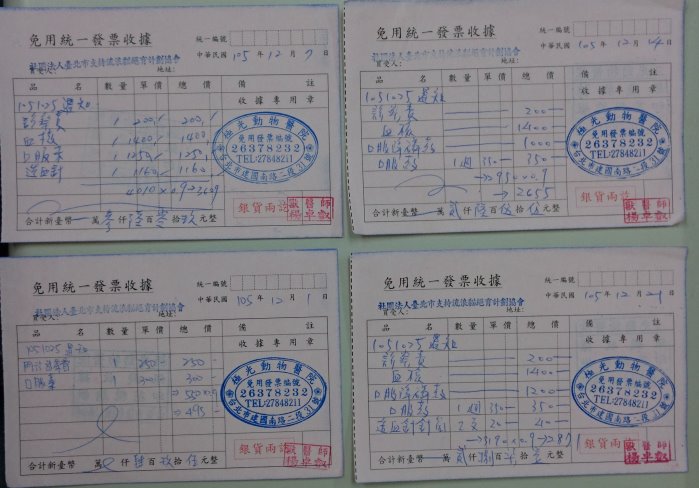 免用統一發票收據
統一編號
中華民國 105 年 12 月 7 日
社團法人臺北市支持流浪貓絕育計劃協會
買受人: 地址:
品 名 數量 單價 總價 備 註
收據專用章
診察費 1 200 200
血檢 1 1400 1400
1 1250 1250
造血針 1 1160 1160
4010×0.9→3609
極光動物醫院
免用發票編號
26378232
TEL:27848211
台北市建國南路二段31號
銀貨兩訖
獸醫師
楊卓叡
合計新臺幣 萬 參仟陸百零拾玖元整
免用統一發票收據
統一編號
中華民國 105 年 12 月 14 日
社團法人臺北市支持流浪貓絕育計劃協會
買受人: 地址:
品 名 數量 單價 總價 備 註
收據專用章
診察費 200
血檢 1400
1000
口服藥 1週 350 350
→2950×0.9
→2655
極光動物醫院
免用發票編號
26378232
TEL:27848211
台北市建國南路二段31號
銀貨兩訖
獸醫師
楊卓叡
合計新臺幣 萬 貳仟陸百伍拾伍元整
免用統一發票收據
統一編號
中華民國 105 年 12 月 1 日
社團法人臺北市支持流浪貓絕育計劃協會
買受人: 地址:
品 名 數量 單價 總價 備 註
收據專用章
1 250 250
1 300 300
→550×0.9
→495
極光動物醫院
免用發票編號
26378232
TEL:27848211
台北市建國南路二段31號
銀貨兩訖
獸醫師
楊卓叡
合計新臺幣 萬 仟 肆百玖拾伍元整
免用統一發票收據
統一編號
中華民國 105 年 12 月 21 日
社團法人臺北市支持流浪貓絕育計劃協會
買受人: 地址:
品 名 數量 單價 總價 備 註
收據專用章
診察費 200
血檢 1400
1200
口服藥 1週 350 350
2支 20 40
→3190×0.9→2871
極光動物醫院
免用發票編號
26378232
TEL:27848211
台北市建國南路二段31號
銀貨兩訖
獸醫師
楊卓叡
合計新臺幣 萬 貳仟捌百柒拾壹元整